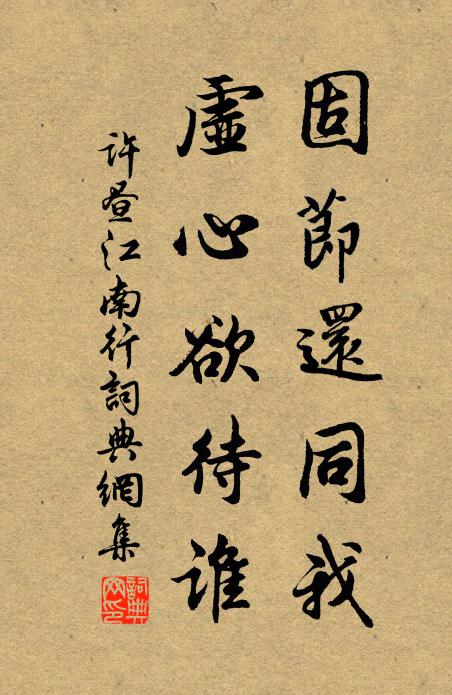 固節還同我
虛心欲待誰
許晝江南行詞典網集
詞典網印